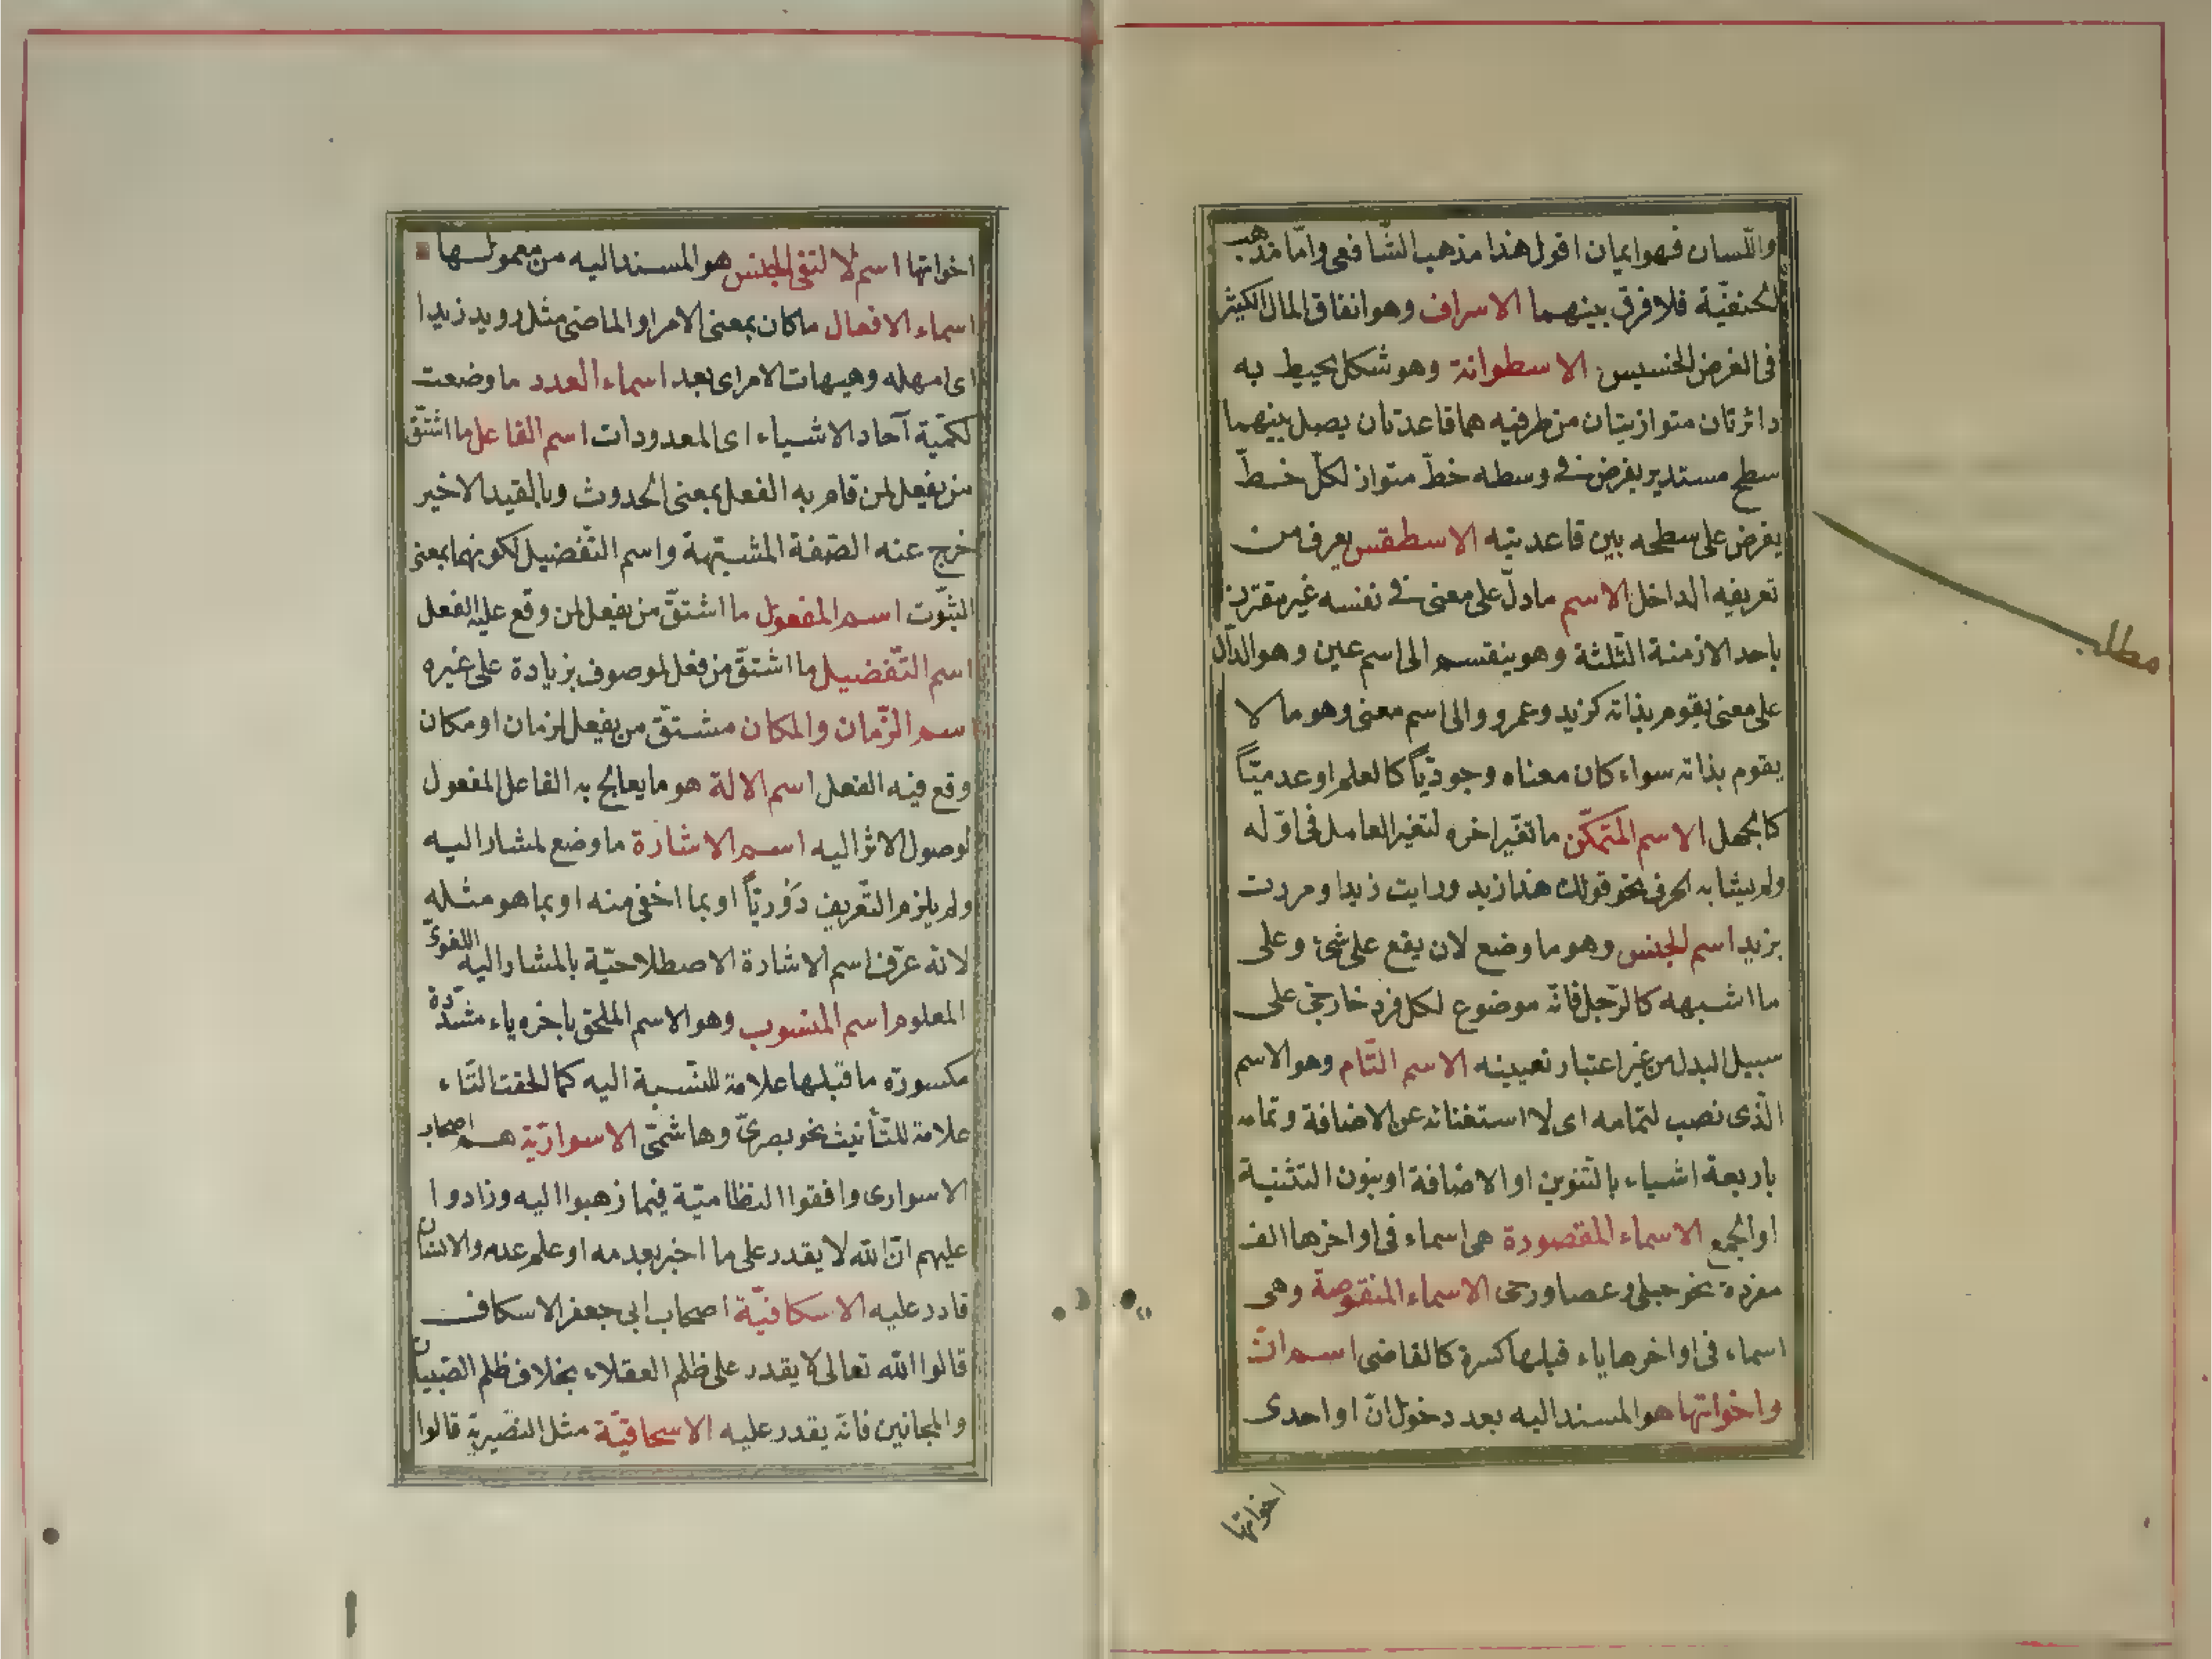 واللسان فهو ايمان اقول هذا مذهب الشافعى وامّا مذهب
الحنفيّة فلا فرق بينهما الاسراف وهو انفاق المال الكثير
فى الغرض الخسيس الاسطوانة وهو شكل يحيط به
دائرتان متوازيتان من طرفيه هما قاعدتان يصل بينهما
سطح مستدير يفرض فى وسطه خطّ متواز لكلّ خطّ
يفرض على سطحه بين قاعدتيه الاسطقس يعرف من
تعريفه الداخل الاسم مادلّ على معنى فى نفسه غير مقترن
باحد الازمنة الثلثة وهو ينقسم الى اسم عين وهو الدال
على معنى يقوم بذاته كزيد وعمرو والى اسم معنى وهو مالا
يقوم بذاته سواء كان معناه وجوديّاً كالعلم او عدميّاً
كالجهل الاسم المتمكّن ماتغيّر اخره لتغير العامل فى اوّله
ولم يشابه الحرف نحو قولك هذا زيد ورايت زيدا ومررت
بزيد اسم الجنس وهو ما وضع لان يقع على شئ وعلى
ما اشبهه كالرّجل فانّه موضوع لكل فرد خارجى على
سبيل البدل من غير اعتبار تعيينه الاسم التّام وهو الاسم
الّذى نصب لتمامه اى لا استغنائه عن الاضافة وتمامه
باربعة اشياء بالتّنوين او الاضافة او بنون التثنية
او الجمع الاسماء المقصورة هى اسماء فى اواخرها الف
مفردة نحو حبلى وعصا ورحى الاسماء المنقوصة وهى
اسماء فى اواخرها ياء قبلها كسرة كالقاضى اسم انّ
واخواتها هو المسند اليه بعد دخول انّ او احدى
اخواتها
مطلب
اخواتها اسم لا لنفى الجنس هو المسند اليه من معموليها
اسماء الافعال ماكان بمعنى الامر او الماضى مثل رويد زيدا
اى امهله وهيهات الامر اى بعد اسماء العدد ما وضعت
لكمّية آحاد الاشياء اى المعدودات اسم الفاعل ما اشتقّ
من يفعل لمن قام به الفعل بمعنى الحدوث وبالقيد الاخير
خرج عنه الصّفة المشبّهة واسم التّفضيل لكونهما بمعنى
الثبوت اسم المفعول ما اشتقّ من يفعل لمن وقع عليه الفعل
اسم التّفضيل ما اشتقّ من فعل لموصوف بزيادة على غيره
اسم الزّمان والمكان مشتقّ من يفعل لزمان او مكان
وقع فيه الفعل اسم الالة هو ما يعالج به الفاعل المفعول
لوصول الاثر اليه اسم الاشارة ماوضع لمشار اليه
ولم يلزم التّعريف دَوْريّاً او بما اخفى منه او بما هو مثله
لانه عرّف اسم الاشارة الاصطلاحيّة بالمشار اليه اللغوىّ
المعلوم اسم المنسوب وهو الاسم الملحق باخره ياء مشدّدة
مكسورة ما قبلها علامة للنّسبة اليه كما الحقت التّاء
علامة للتّأنيث نحو بصرىّ وهاشمىّ الاسواريّة هم اصحاب
الاسوارى وافقوا النظاميّة فيما ذهبوا اليه وزادوا
عليهم انّ الله لا يقدر على ما اخبر بعدمه او علم عدمه والانسان
قادر عليه الاسكافيّة اصحاب ابى جعفر الاسكاف
قالوا الله تعالى لا يقدر على ظلم العقلاء بخلاف ظلم الصّبيان
والمجانين فانّه يقدر عليه الاسحاقيّة مثل النصّيريّة قالوا